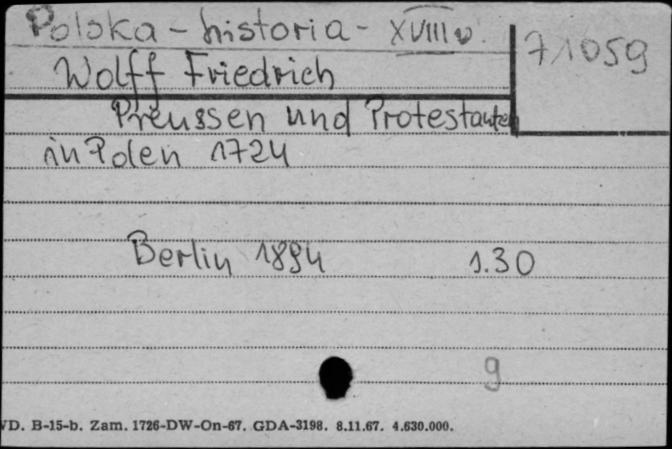 Polska - historia - XVIII w.
71059
Wolff Friedrich
Preussen und Protestanten
in Polen 1724
Berlin 1894
1.30
9
VD. B-15-b. Zam. 1726-DW-On-67. GDA-3198. 8.11.67. 4.630.000.